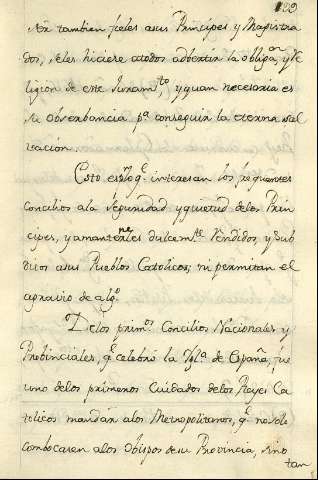 122
tan tambien fieles a sus Principes, y Magistra
dos, seles hiciere atodos adbertir la obligaon, y Re
ligion de este Juramto, y quan necesaria es
su obserbancia pa conseguir la eterna sal
vación.
Esto es lo qe interesan los frequentes
Concilios ala seguridad y quietud delos Prin
cipes, y amantenerles dulcemte Rendidos, y Sub
ditos asus Pueblos Catolicos; ni permitan el
agravio de algo.
Delos primos Concilios Nacionales y
Probinciales, qe celebró la Yglª de España, fue
uno delos primeros Cuidados delos Reyes Ca
tolicos mandar alos Metropolitanos, qe no solo
combocasen alos Obispos de su Provincia, sino
tan